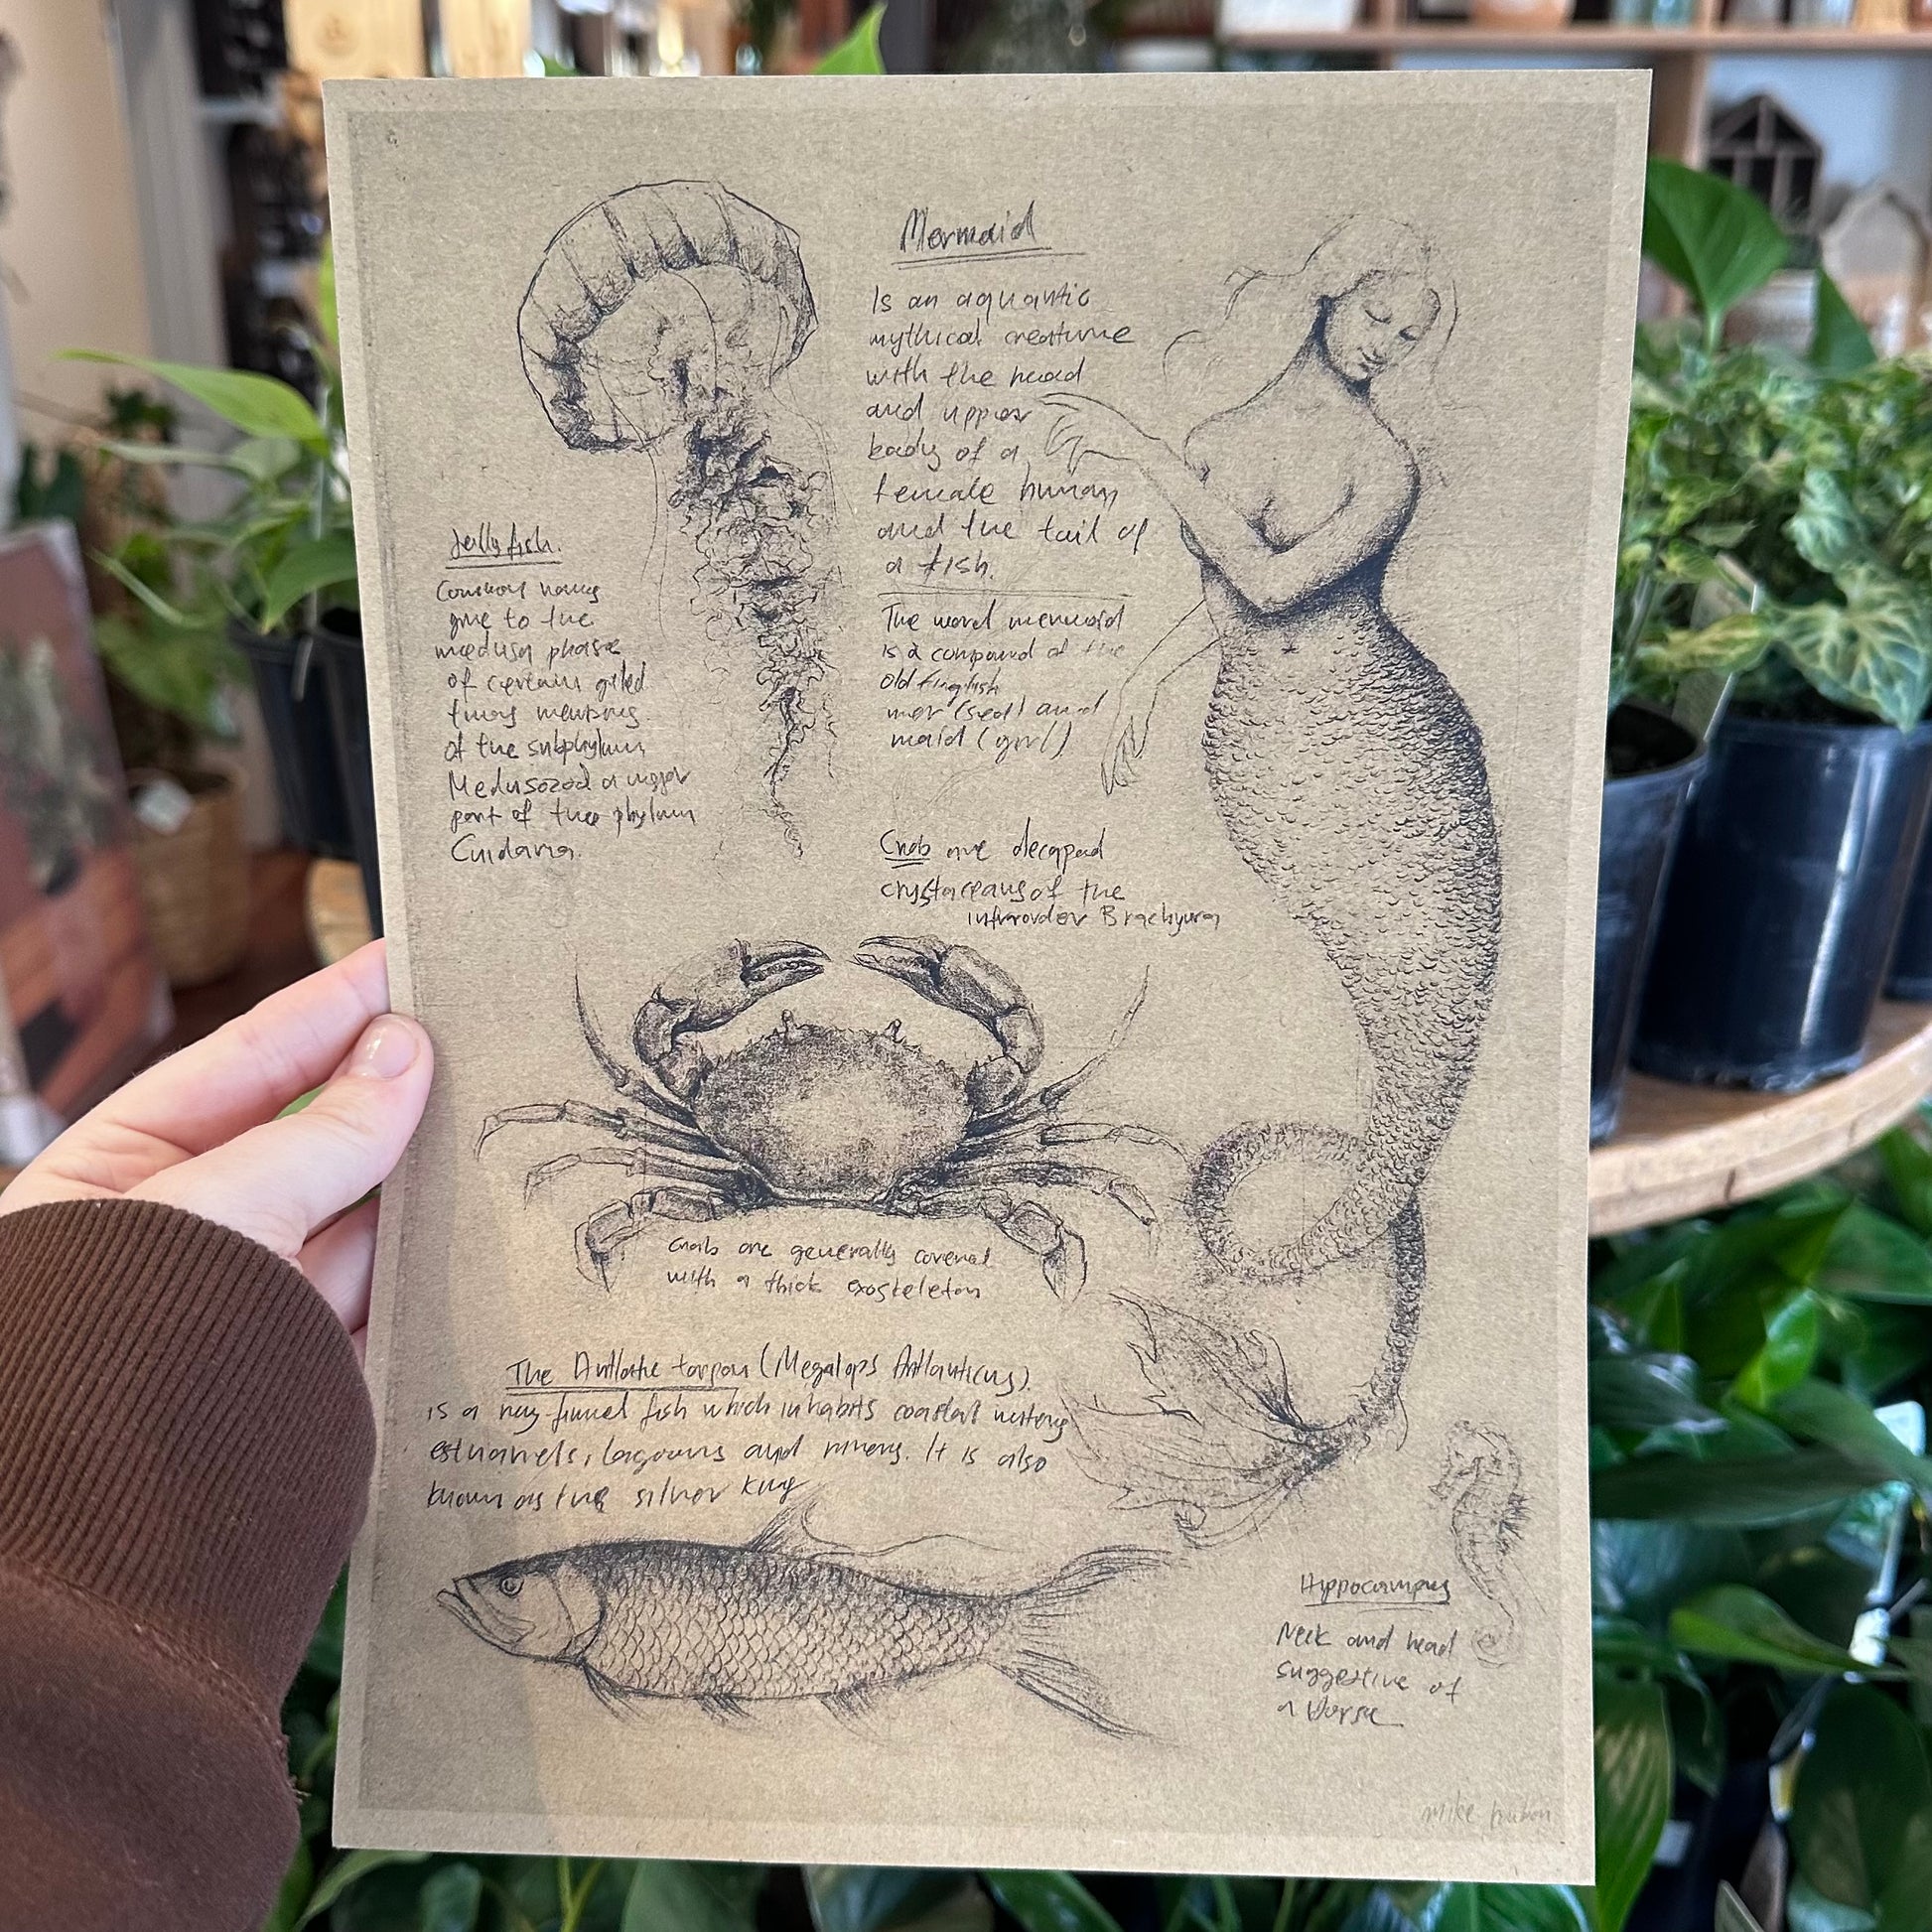 Mermaid
Is an aquantic
mythical creature
with the head
and upper
body of a
female human
and the tail of
a fish.
The word mermaid
is a compound of the
Old English
mer (sea) and
maid (girl)
Jellyfish.
Common names
give to the
medusa phase
of certain
of the subphylum
Medusozoa a major
part of the phylum
Cnidaria.
Crab are decapod
crystaceans of the
infraorder Brachyura
Crab are generally covered
with a thick exoskeleton
The Atlantic tarpon (Megalops Atlanticus).
is a ray-finned fish which inhabits coastal waters
lagoons and rivers. It is also
known as the silver king
Hippocampus
Neck and head
suggestive of
a horse
mike